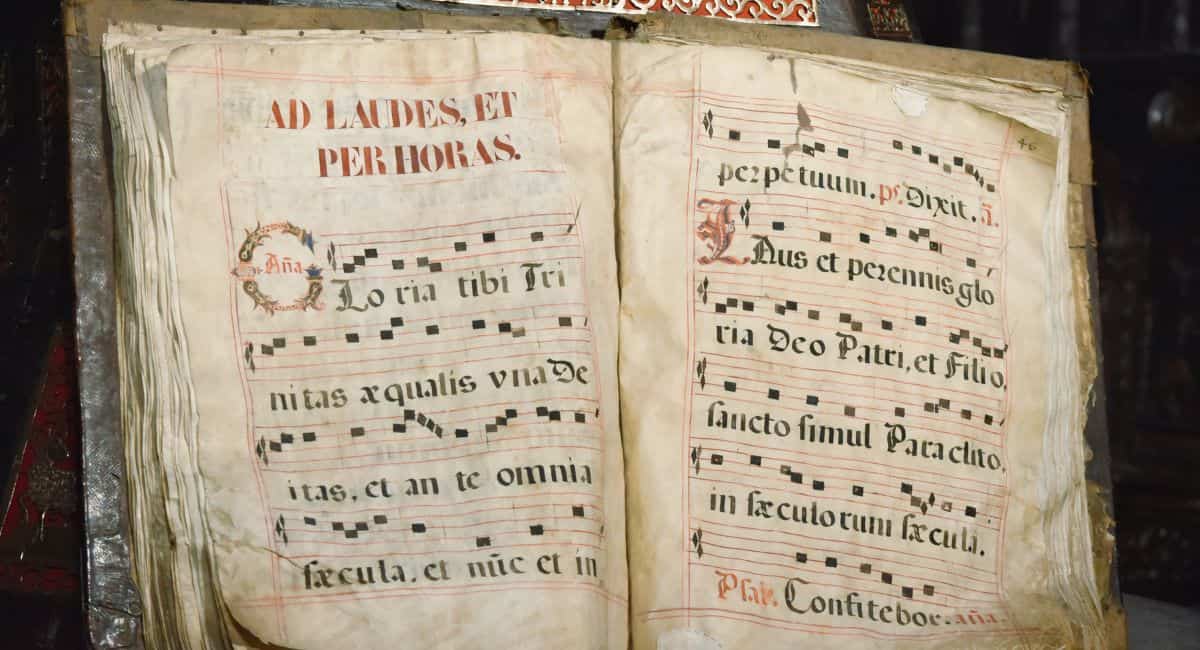 AD LAUDES, ET
PER HORAS.
Aña
GLo ria tibi Tri
ni tas æqualis vna De
itas, et an te omnia
ſæcula, et nūc et in
46
perpetuum. ps. Dixit. ā.
LAus et perennis glo
ria Deo Patri, et Filio,
ſancto ſimul Paraclito,
in ſæculorum ſæcula.
Pſal. Confitebor. aña.